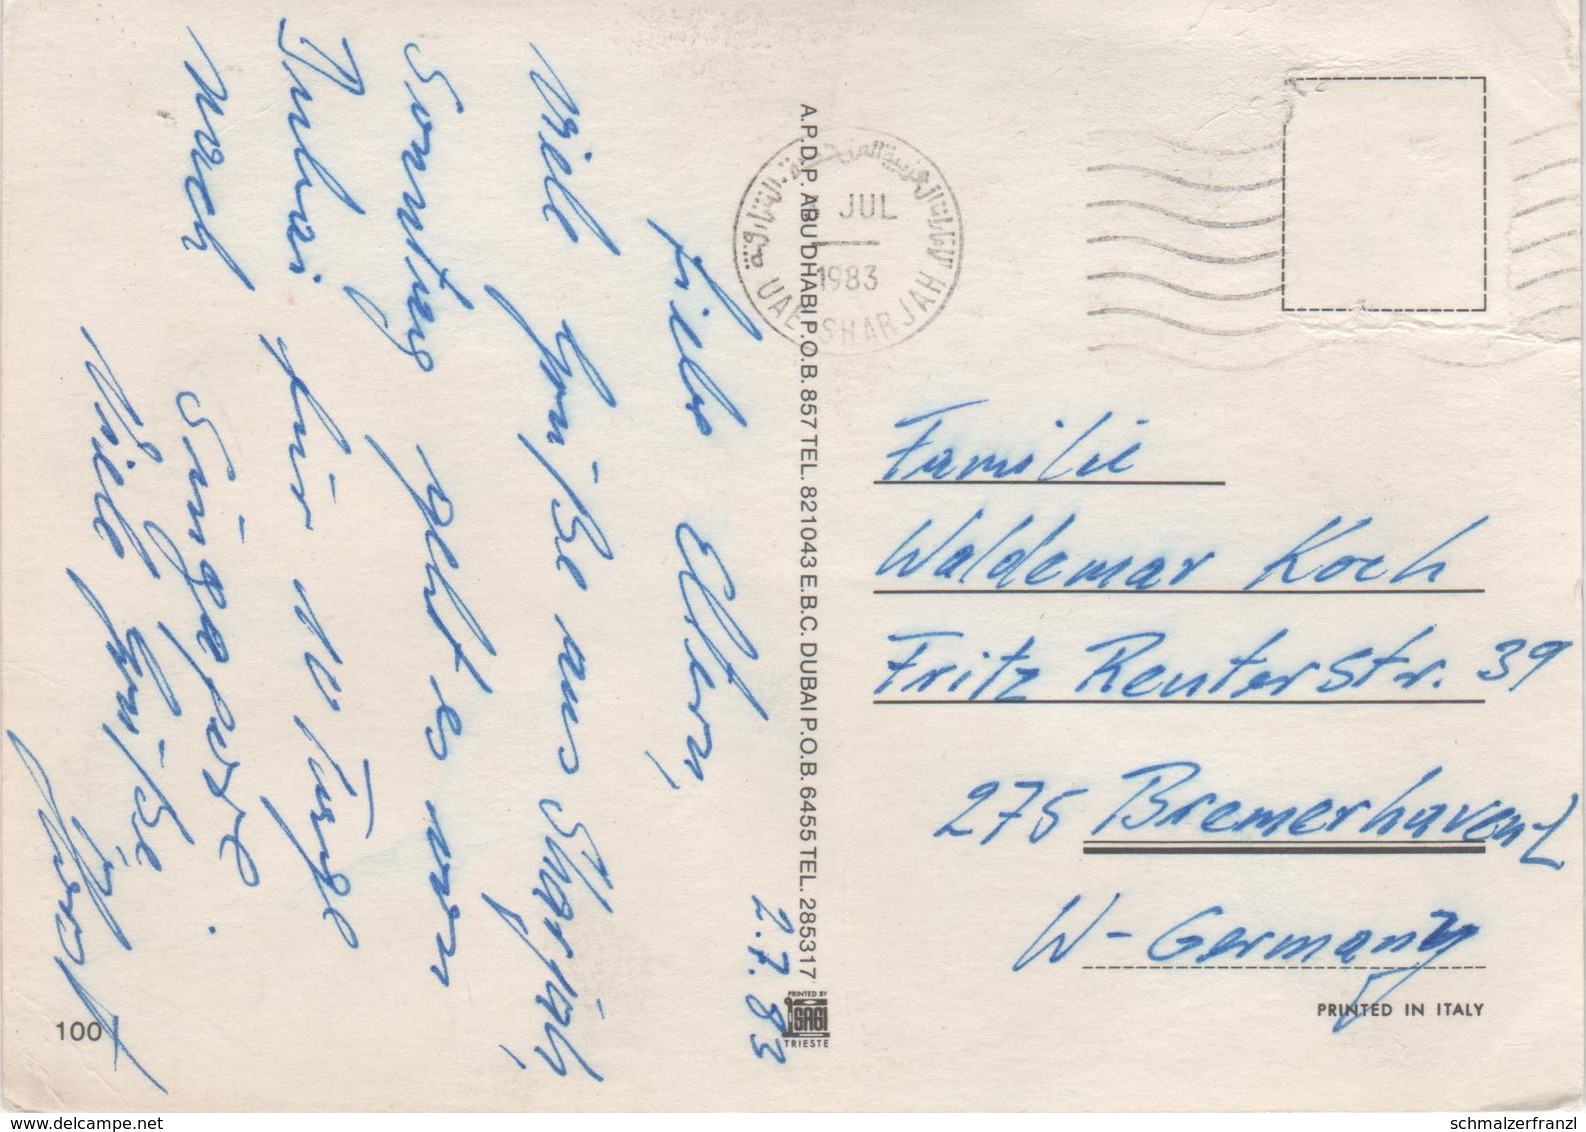 2.7.83
Liebe Eltern,
Viele Grüße aus Sharjah,
Sonntag geht es von
Dubai für 10 Tage
nach Singapore.
Viele Grüße
A.P.D.P. ABU DHABI P.O.B. 857 TEL. 821043 E.B.C. DUBAI P.O.B. 6455 TEL. 285317
PRINTED BY
SAGI
TRIESTE
JUL
1983
UAE SHARJAH
Familie
Waldemar Koch
Fritz Reuterstr. 39
275 Bremerhaven-L
W-Germany
PRINTED IN ITALY
100
schmalzerfranzl
www.delcampe.net